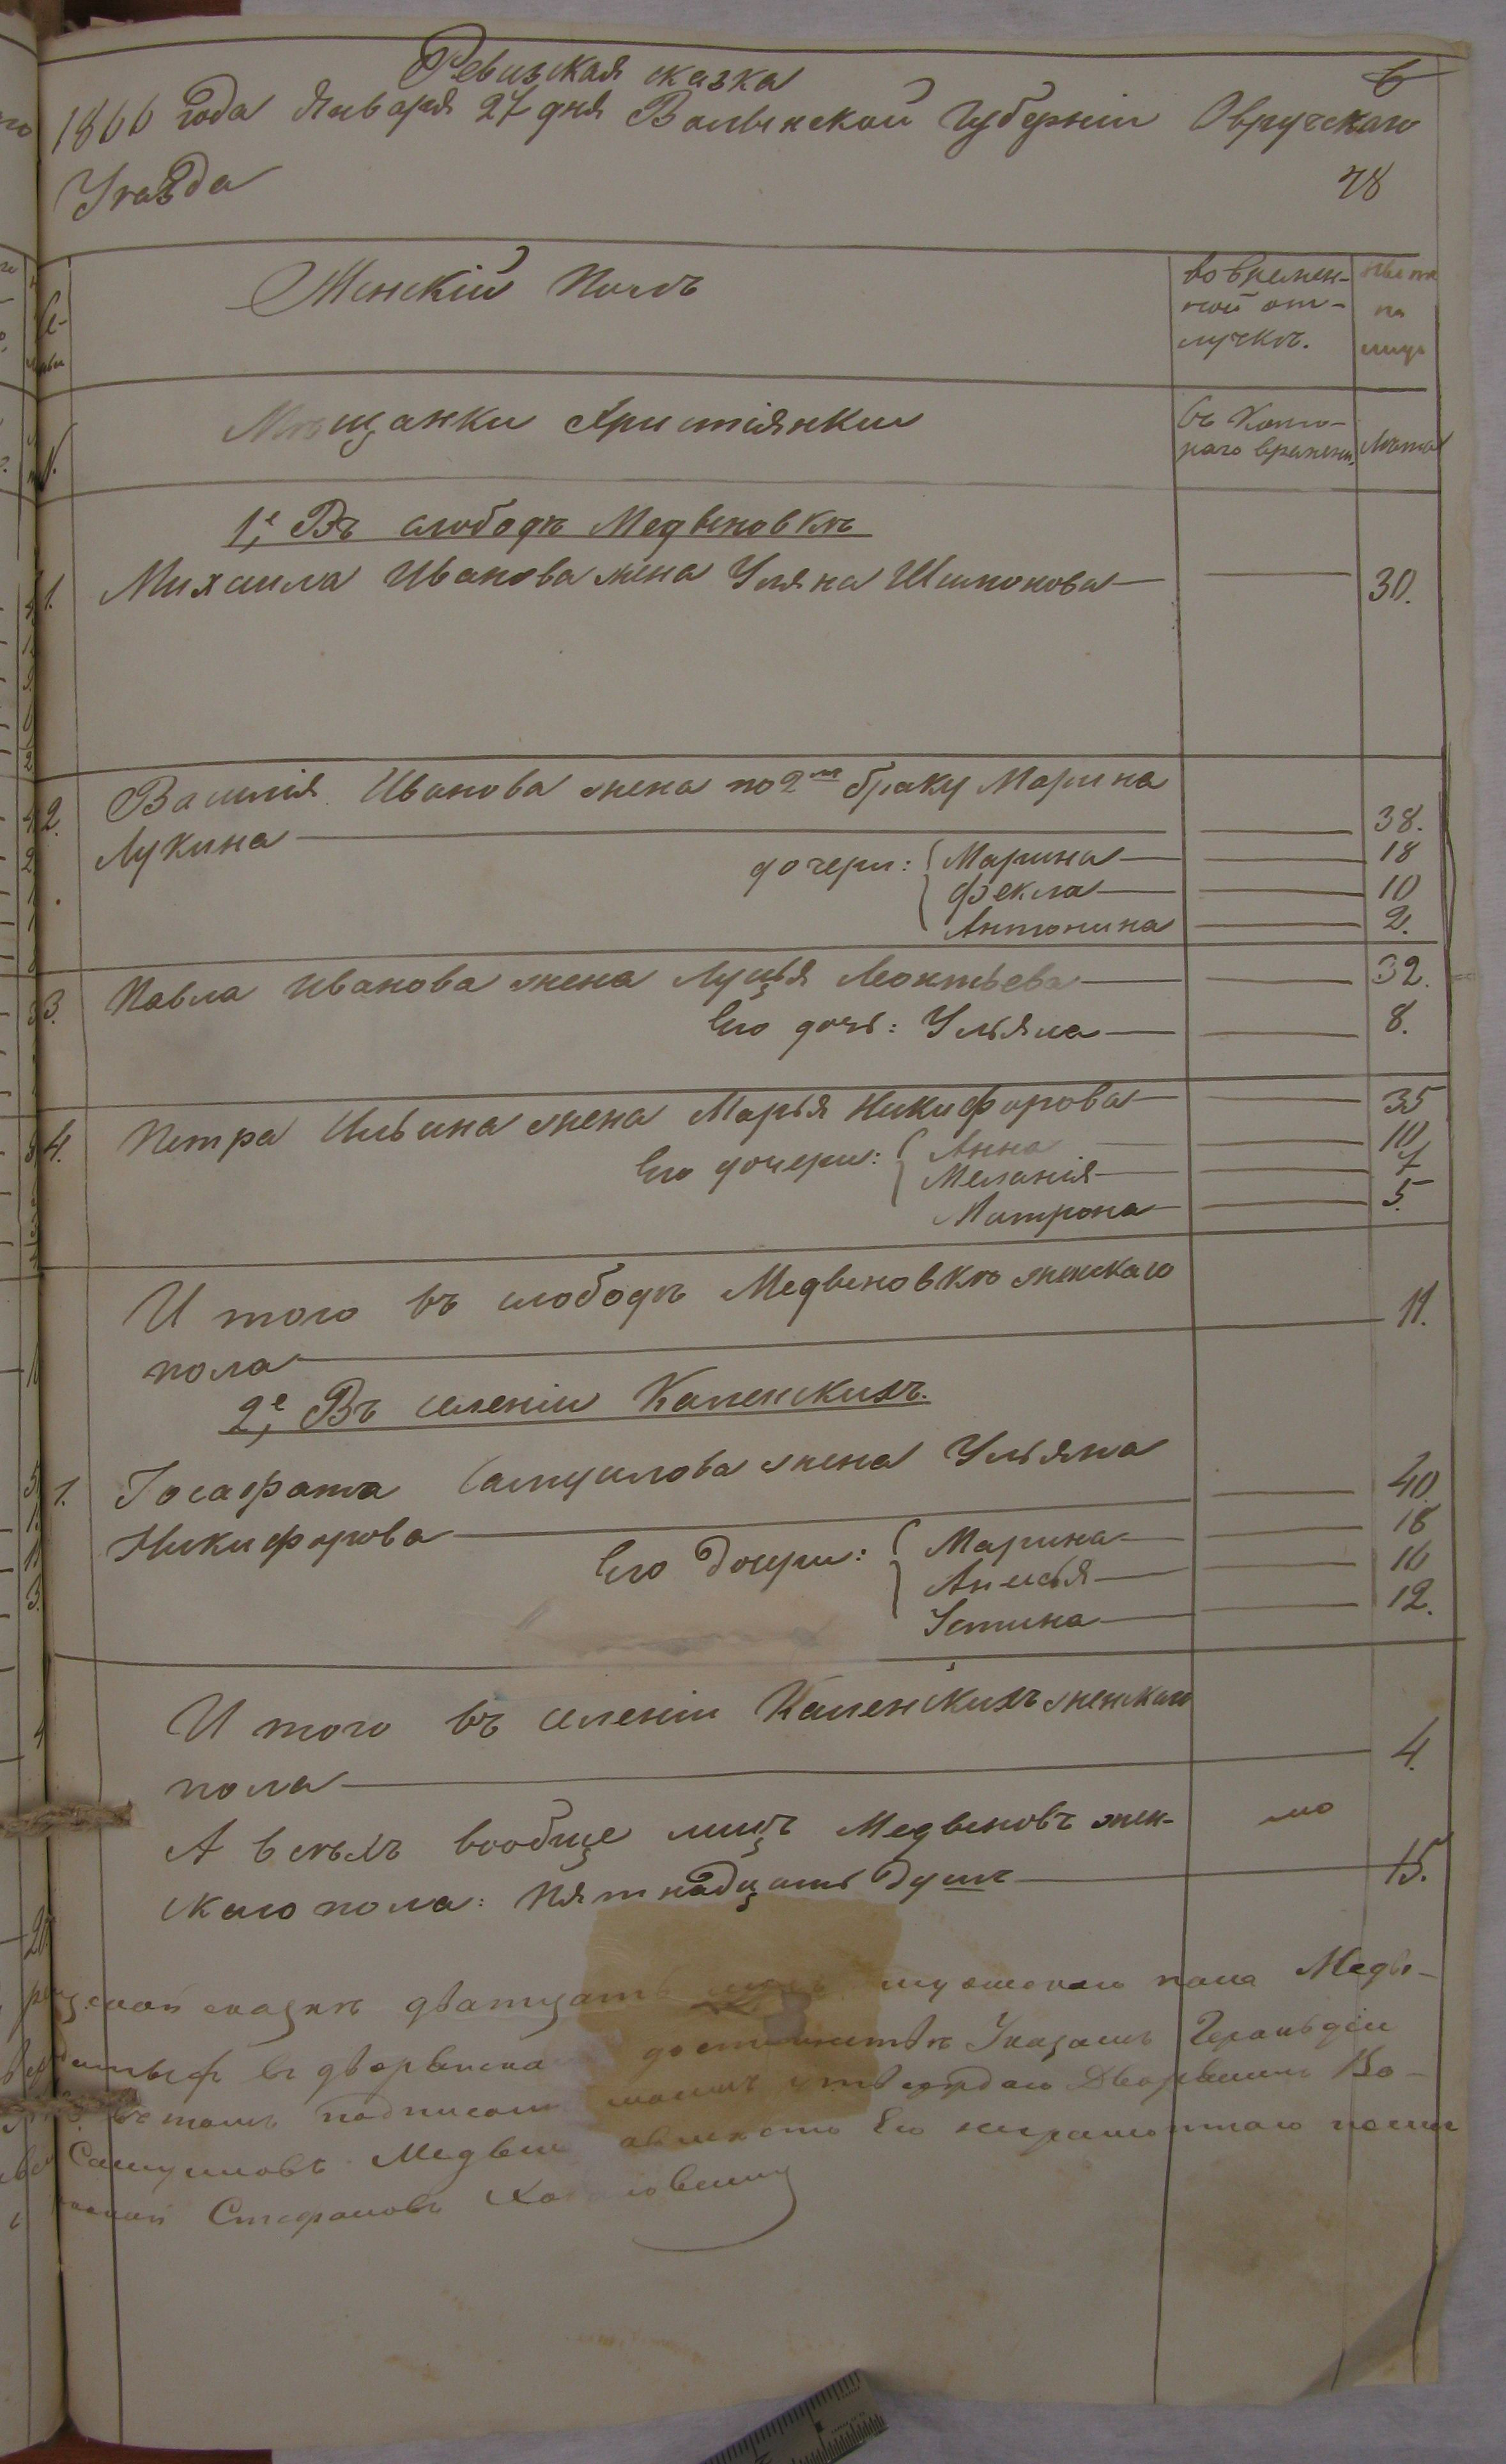 Ревизская сказка
6
1866 года Января 27 дня Волынской Губерніи Овручскаго
Уѣзда
78
Женскій Полъ
во времен-
ной от-
лучкѣ.
на
лицо
№.
Мѣщанки Христіянки
съ кото-
раго времени.
Лѣта
1,е Въ слободѣ Медвеновкѣ
1. Михаила Иванова жена Уляна
30.
2. Василія Иванова жена по 2му браку Марина
Лукина
38.
дочери: Марина
18
Фекла
10
Антонина
2.
3. Павла Иванова жена Луція Леонтьева
32.
Его дочь: Ульяна
8.
4. Петра Ильина жена Марья Никифорова
35
Его дочери: Анна
10
Меланія
7
Матрона
5.
И того въ слободѣ Медвеновкѣ женскаго
пола
11.
2,е Въ селеніи Каменскихъ.
1. Іосафата Самуилова жена Ульяна
Никифорова
40.
Его дочери: Марина
18
Анелья
16
Устина
12.
И того въ селеніи Каменскихъ женскаго
пола
4.
А всѣхъ вообще лицъ Медвеновъ жен-
скаго пола: Пятнадцать Душъ
15.
сказкѣ дватцать мужскаго пола Медв-
въ дворянском достоинствѣ Указомъ Герольдіи
въ томъ подписом Дворянинъ
Самуиловъ Его неграмотнаго
Стефановъ